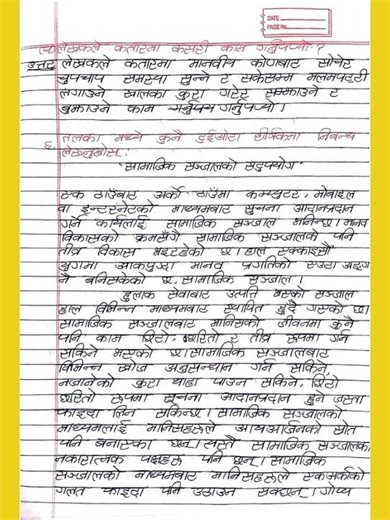 DATE
PAGE No.
लेखकले कतारमा कसरी काम गर्नुपर्थ्यो ?
उत्तर लेखकले कतारमा मानवीय कोणबाट सोचेर
चुपचाप समस्या सुन्ने र सकेसम्म मलमपट्टी
लगाउने खालका कुरा गरेर सम्झाउने र
बुझाउने काम गर्नुपर्थ्यो ।
६. तलका मध्ये कुनै दुईओटा शीर्षकमा निबन्ध
लेख्नुहोस्:
"सामाजिक सञ्जालको सदुपयोग"
एक ठाउँबाट अर्को ठाउँमा कम्प्युटर, मोबाइल
वा इन्टरनेटको माध्यमबाट सूचना आदानप्रदान
गर्ने कार्यलाई सामाजिक सञ्जाल भनिन्छ । मानव
विकासको क्रमसँगै सामाजिक सञ्जालको पनि
तीव्र विकास भइरहेको छ । हाल एक्काइसौं
युगमा आइपुग्दा मानव प्रगतिको एउटा अङ्ग
नै बनिसकेको छ, सामाजिक सञ्जाल ।
हुलाक सेवाबाट उत्पत्ति भएको सञ्जाल
हाल विभिन्न माध्यमबाट स्थापित हुँदै गएको छ ।
सामाजिक सञ्जालबाट मानिसको जीवनमा कुनै
पनि काम छिटो, छरितो र तीव्र रूपमा गर्न
सकिने भएको छ । सामाजिक सञ्जालबाट
विभिन्न खोज अनुसन्धान गर्न सकिने,
नजानेको कुरा थाहा पाउन सकिने, छिटो
छरितो रूपमा सूचना आदानप्रदान हुने जस्ता
फाइदा लिन सकिन्छ । सामाजिक सञ्जालको
माध्यमलाई मानिसहरूले आयआर्जनको स्रोत
पनि बनाएका छन् । त्यस्तै सामाजिक सञ्जालका
नकारात्मक पक्षहरू पनि छन् । सामाजिक
सञ्जालको माध्यमबाट मानिसहरूले एकअर्काको
गलत फाइदा पनि उठाउन सक्छन् । गोप्य